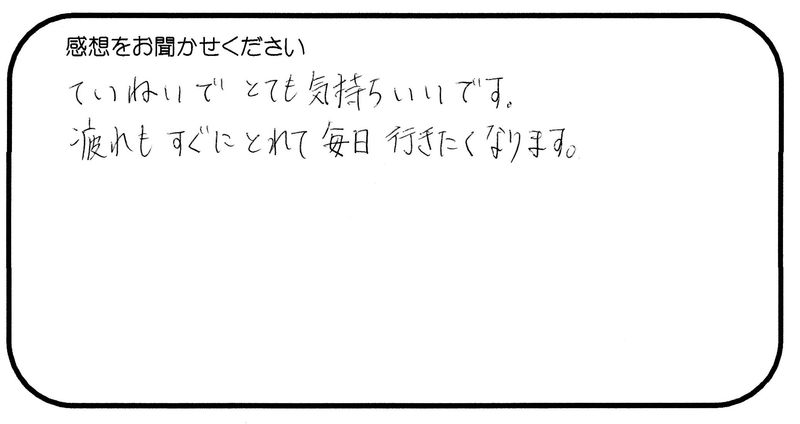 感想をお聞かせください
ていねいで とても気持ちいいです。
疲れもすぐにとれて毎日行きたくなります。